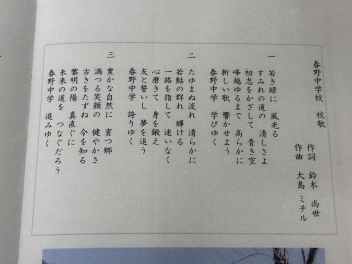 春野中学校 校歌
作詞 鈴木 尚世
作曲 大島 ミチル
一
若き緑に 風光る
すみれの道の 清しさよ
初志をかざして 青き空
峰越ゆるまで 高らかに
新しい歌 響かせよう
春野中学 学びゆく
二
たゆまぬ流れ 清らかに
若鮎の群れ 輝ける
一路を指して 迷いなく
心磨きて 身を鍛え
友と誓いし 夢を追う
春野中学 誇りゆく
三
豊かな自然に 育つ郷
満つる笑顔の 健やかさ
古きをたずね 今を知る
黎明の陽 真直ぐに
未来の道を つなぐだろう
春野中学 進みゆく